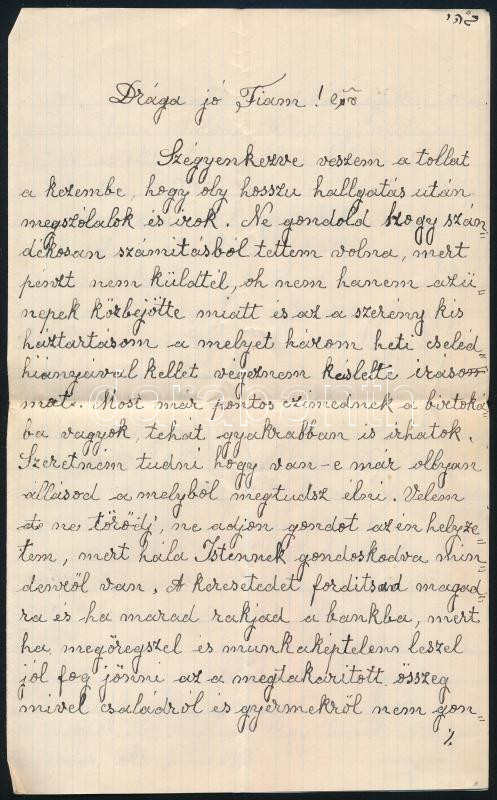 ב"הי
Drága jó Fiam!
Szégyenkezve veszem a tollat
a kezembe, hogy oly hosszu hallgatás után
megszólalok és irok. Ne gondold hogy szán=
dékosan számitásból tettem volna, mert
pénzt nem küldtél, oh nem hanem az ü=
nepek közbejötte miatt és az a szerény kis
háztartásom a melyet három heti cseléd=
hiányával kellet végeznem késlelte irásom
mat. Most már pontos czimednek a birtoká=
ba vagyok, tehát gyakrabban is irhatok.
Szeretném tudni hogy van-e már ollyan
állásod a melyből megtudsz élni. Velem
ne törődj, ne adjon gondot az én helyze=
tem, mert hála Istennek gondoskodva min=
denről van. A keresetedet forditsad magad=
ra és ha marad rakjad a bankba, mert
ha megöregszel és munkaképtelem leszel
jól fog jönni az a megtakaritott összeg
mivel családról és gyermekről nem gon=
./.
darabanth